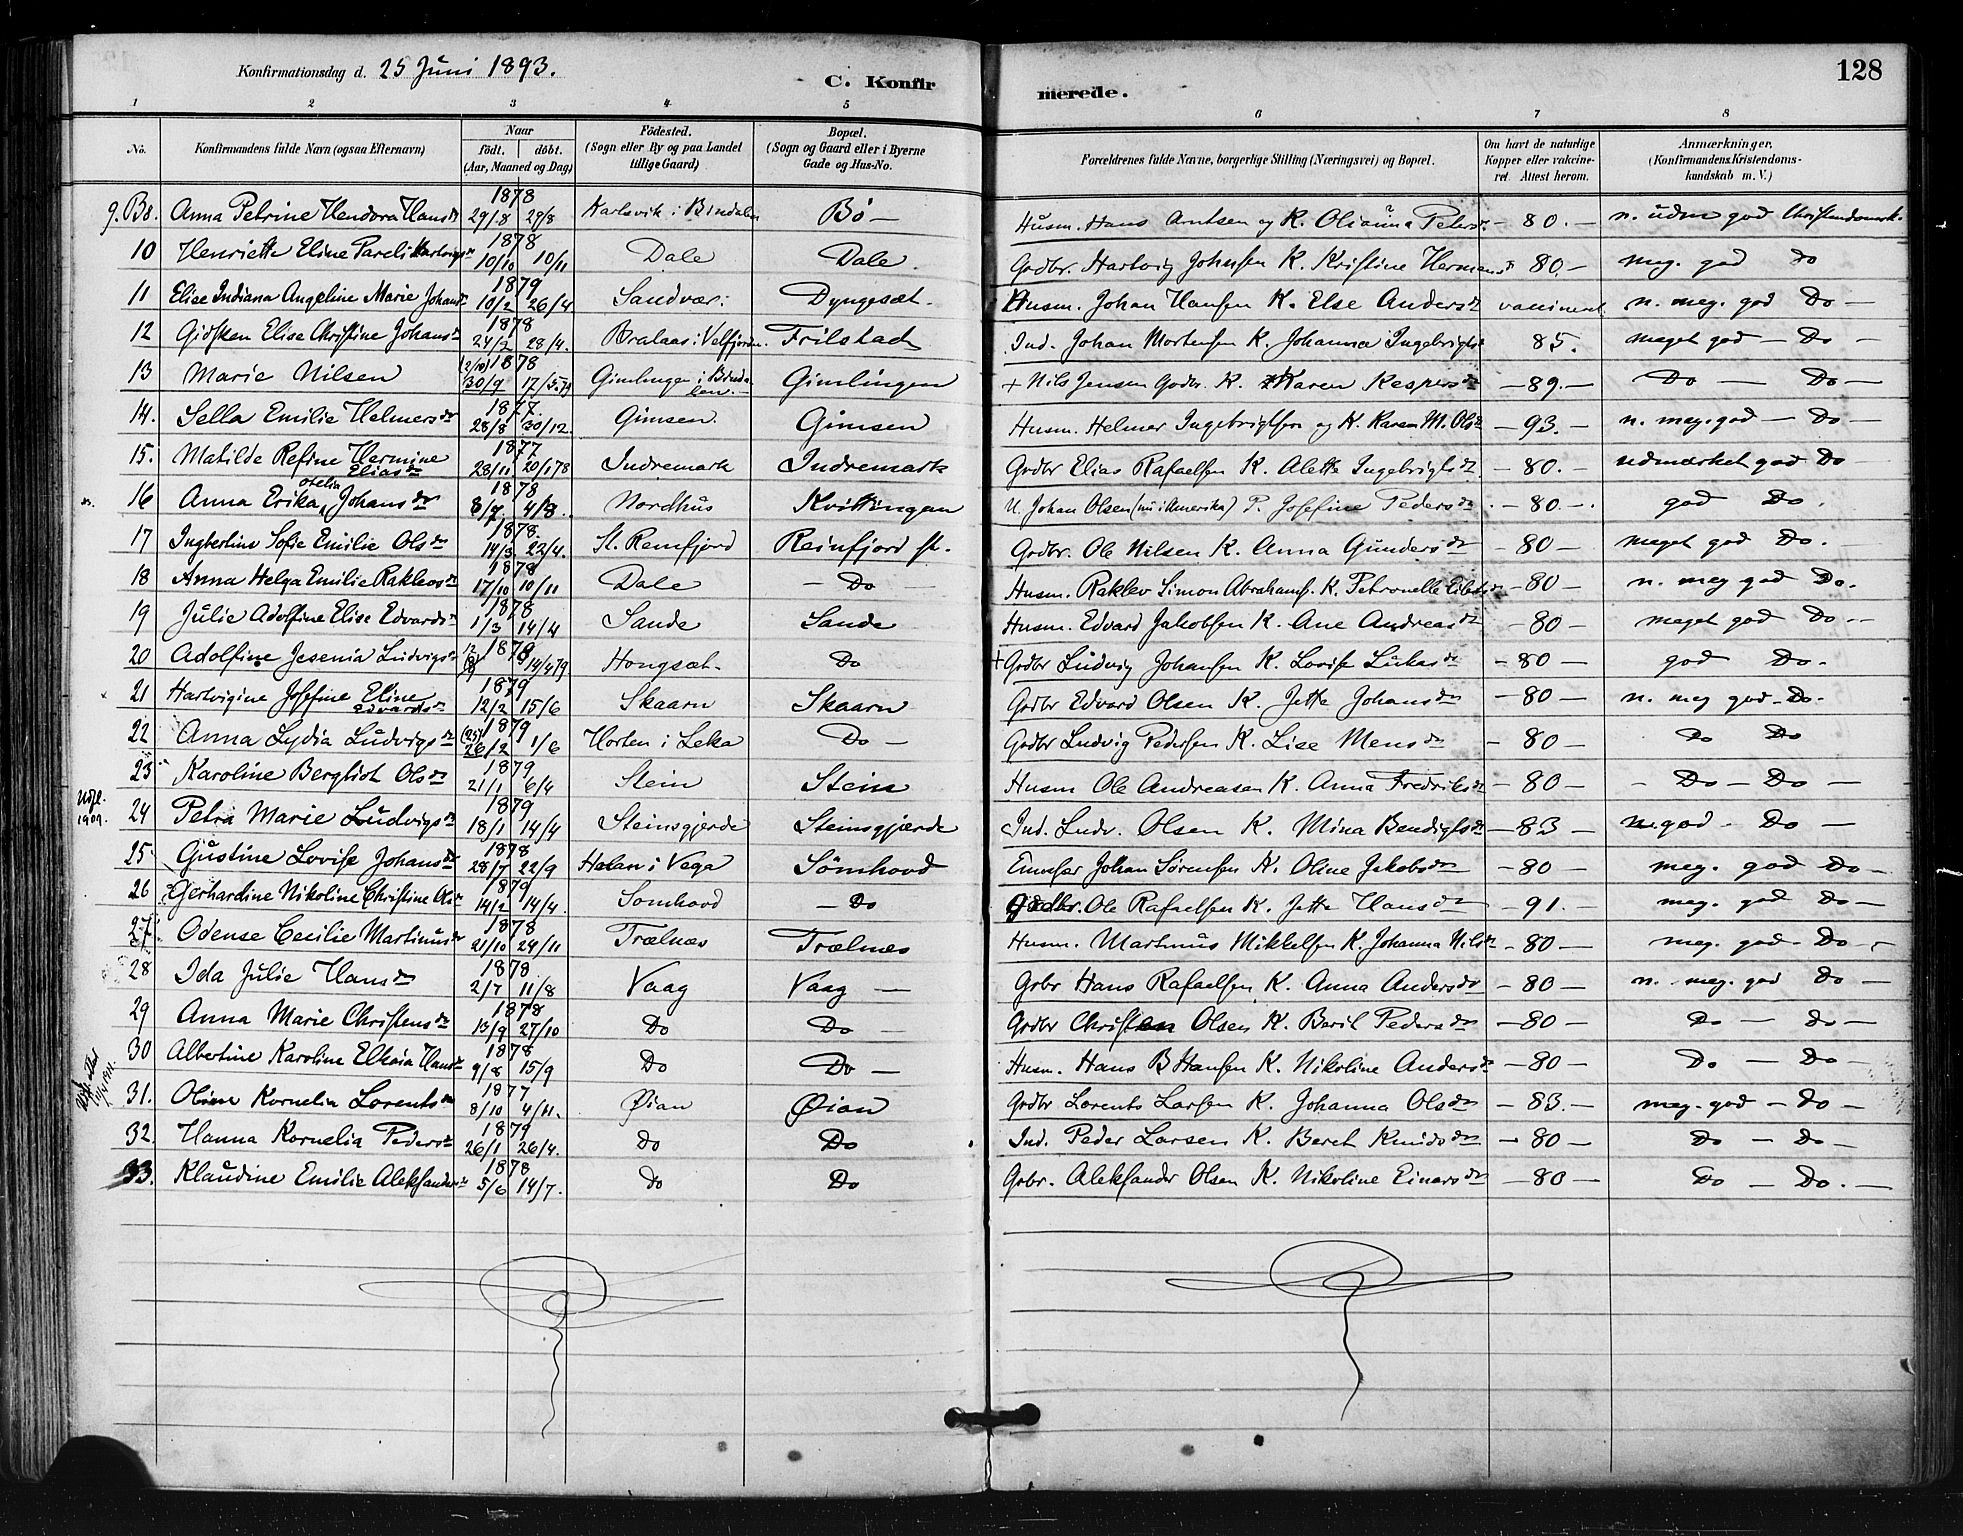 Konfirmationsdag d. 25 Juni 1893. C. Konfirmerede. 128
1 2 3 4 5 6 7 8
No. Konfirmandens fulde Navn (ogsaa Efternavn) Naar födt. döbt. (Aar, Maaned og Dag) Födested. (Sogn eller By og paa Landet tillige Gaard) Bopæl. (Sogn og Gaard eller i Byerne Gade og Hus-No. Forældrenes fulde Navne, borgerlige Stilling (Næringsvei) og Bopæl. Om havt de naturlige Kopper eller vakcineret. Attest herom. Anmærkninger. (Konfirmandens Kristendomskundskab m. V.)
9. Bö. Anna Petrine Hendora Hansdr 1878 29/8 Karlsvik i Bindalen Bö — Husm. Hans Arntsen og K. Olianna Petersdr — 80. — n. udm god Christendomsk.
10 Henriette Eline Pareli Hartvigsdr 1878 10/10 10/11 Dale Dale. Grdbr. Hartvig Johnsen K. Kristine Hermansdr 80 — meg. god Do
11 Elise Indiana Angeline Marie Johansdr 1879 10/2 26/4 Sandvær: Dyngesæt. Husm. Johan Hansen K. Else Andersdr vaccineret n. meg. god Do —
12 Gidsken Elise Christine Johansdr 1878 24/2 28/4. Bralaas i Velfjorden. Frilstad Ind. Johan Mortensen K. Johanna Ingebrigtsdr 85. meget god — Do —
13 Marie Nilsen (2/10) 1878 30/9 17/5.79 Gimlingen i Bindalen. — Gimlingen + Nils Jensen Grdbr. K. Karen Kaspersdr — 89. — Do — Do —
14. Sella Emilie Helmersdr 1877. 28/8 30/12. Gimsen. Gimsen Husm. Helmer Ingebrigtsen og K. Karen M. Olsdr — 93. — n. meg. god — Do —
15. Matilde Refine Hermine Eliasdr 1877 28/11 20/1 78 Indremark Indremark Grdbr Elias Rafaelsen K. Alette Ingebrigtsdr — 80. — udmærket god Do
16 Anna Erika Otelia Johansdr 1878 8/7 4/8. Nordhus Kvittingen U. Johan Olsen (nu i Amerika) P. Josefine Pedersdr. — 80. — god Do.
17 Ingbertine Sofie Emilie Olsdr 1878. 14/3 22/4. St. Remfjord Reinfjord st. Grdbr. Ole Nilsen K. Anna Gundersdr — 80 — meget god Do.
18 Anna Helga Emilie Raklevsdr 1878 17/10 10/11 Dale — Do Husm. Raklev Simon Abrahams. K. Petronelle — 80 — n. meg god Do.
19 Julie Adolfine Elise Edvardsdr 1878 1/3 14/4 Sande Sande Husm. Edvard Jakobsen K. Ane Andreasdr — 80 — meget god Do —
20 Adolfine Jesenia Ludvigsdr 1878 14/4 79 Hongsæt. Do + Grdbr Ludvig Johansen K. Lovise Lukasdr — 80 — god Do —
21 Hartvigine Josefine Eline Edvardsdr 1879 12/2 15/6 Skaarn Skaarn Grdbr Edvard Olsen K. Jette Johansdr — 80 — n. meg god — Do —
22 Anna Lydia Ludvigsdr 1879 (25) 26/2 1/6 Horten i Leka Do — Grdbr Ludvig Pedersen K. Lise Mensdr — 80 — Do Do
23 Karoline Bergliot Olsdr 1879 21/1 6/4 Stein Stein Husm Ole Andreasen K. Anna Fredriksdr — 80 — — Do — Do —
1909. 24 Petra Marie Ludvigsdr 1879 18/1 14/4 Steinsgjerde Steinsgjærde Ind. Ludv. Olsen K. Mina Bendigtsdr — 83 — n. god — Do —
25 Gustine Lovise Johansdr 1878 28/7 22/9 Holan i Vega Sömhovd Johan Sörensen K. Oline Jakobsdr — 80 — meg. god Do —
26 Gerhardine Nikoline Christine Olsdr 1879 14/2 14/4. Somhovd — Do Grdbr. Ole Rafaelsen K. Jette Hansdr — 91. — meg. god Do —
27. Odense Cecilie Martinusdr 1878 21/10 24/11 Trælnæs Trælnæs Husm. Martinus Mikkelsen K. Johanna Nilsdr — 80 — meg. god — Do —
28 Ida Julie Hansdr 1878 2/7 11/8 Vaag Vaag — Grbr Hans Rafaelsen K. Anna Andersdr — 80 — n. meg. god Do —
29 Anna Marie Christensdr 1878 13/9 27/10 Do Do — Grdbr Christen Olsen K. Beril Pedersdr — 80 — Do — Do —
30 Albertine Karoline Elkaia Hansdr 1878 9/8 15/9 Do Do — Husm. Hans B Hansen K. Nikoline Andersdr — 80 — Do — Do —
31. Oline Kornelia Lorentsdr 1877 8/10 4/11. Øian Øian Grdbr Lorents Larsen K. Johanna Olsdr — 83. — meg. god — Do —
32. Hanna Kornelia Pedersdr 1879 26/1 26/4. Do Do Ind. Peder Larsen K. Beret Knudsdr — 80 — Do — Do —
33. Klaudine Emilie Aleksandersdr 1878 5/6 14/7. Do Do Grbr. Aleksander Olsen K. Nikoline Einarsdr — 80 — Do — Do. —